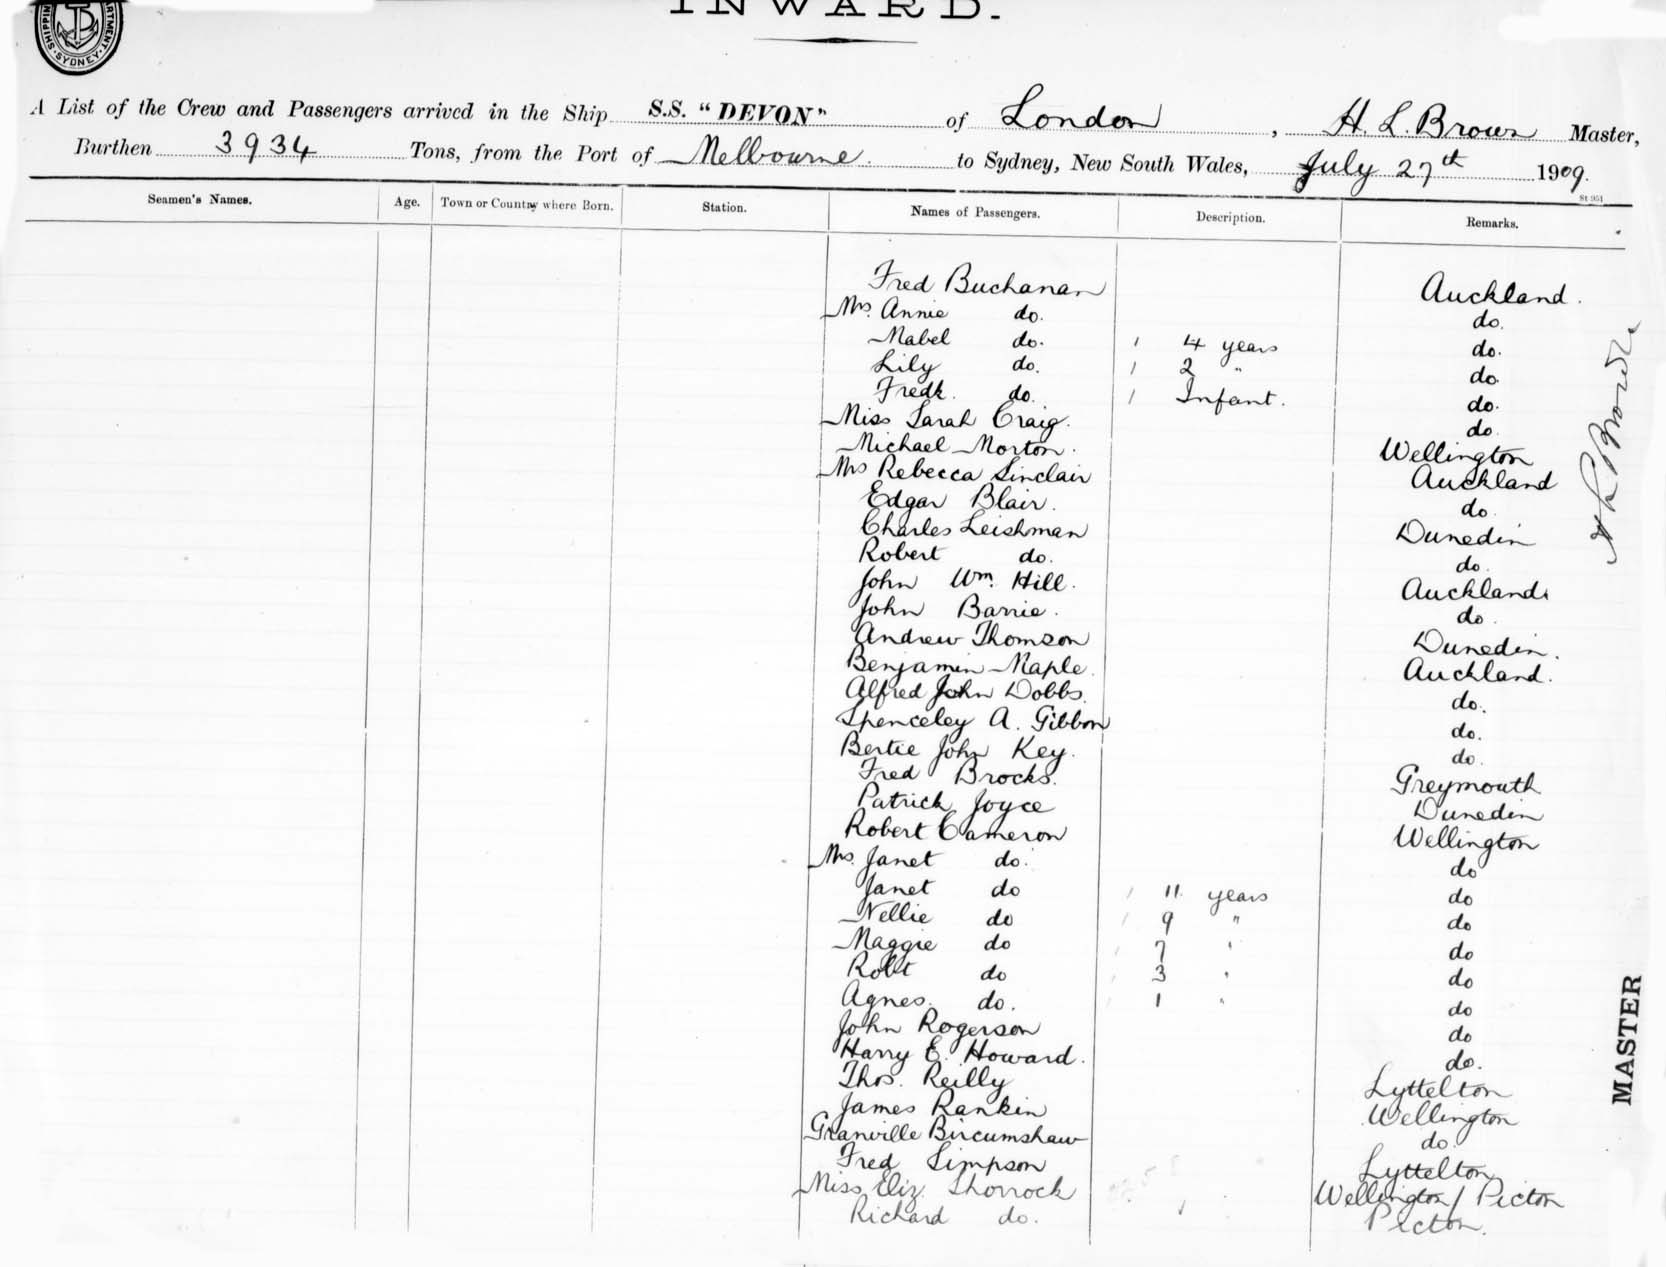 INWARD.
SHIPPING DEPARTMENT. SYDNEY
A List of the Crew and Passengers arrived in the Ship S.S. "DEVON" of London, H. L. Brown Master,
Burthen 3934 Tons, from the Port of Melbourne. to Sydney, New South Wales, July 27th 1909.
St 951
Seamen's Names. Age. Town or Country where Born. Station. Names of Passengers. Description. Remarks.
Fred Buchanan Auckland.
Mrs. Annie do. do.
Mabel do. 4 years do.
Lily do. 2 " do.
Fredk. do. Infant. do.
Miss Sarah Craig. do.
Michael Morton. Wellington
Mrs Rebecca Sinclair Auckland
Edgar Blair. do.
Charles Leishman Dunedin
Robert do. do.
John Wm. Hill. Auckland
John Barrie. do.
Andrew Thomson Dunedin.
Benjamin Maple. Auckland.
Alfred John Dobbs. do.
Spenceley A. Gibbon do.
Bertie John Key. do.
Fred Brocks. Greymouth
Patrick Joyce Dunedin
Robert Cameron Wellington
Mrs. Janet do. do
Janet do 11 years do
Nellie do 9 " do
Maggie do 7 " do
Robt do 3 " do
Agnes. do. 1 " do
John Rogerson do
Harry E. Howard. do.
Thos. Reilly Lyttelton
James Rankin Wellington
Granville Bircumshaw do.
Fred Simpson Lyttelton
Miss Eliz. Shorrock Wellington / Picton
Richard do. Picton.
H L Brown
MASTER